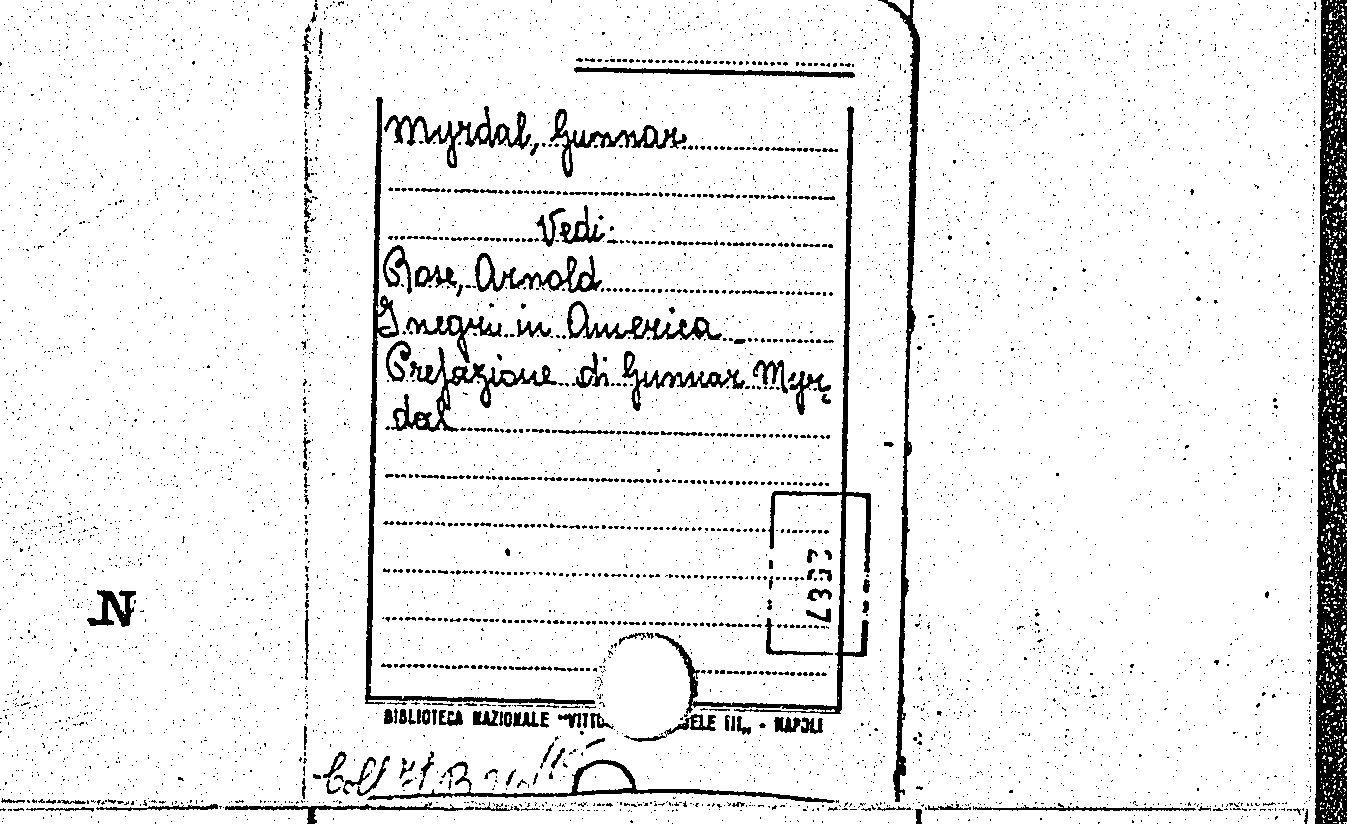 Myrdal, Gunnar
Vedi:
Rose, Arnold
I negri in America
Prefazione di Gunnar Myr-
dal
N
BIBLIOTECA NAZIONALE "VITTO ELE III„ - NAPOLI
Coll